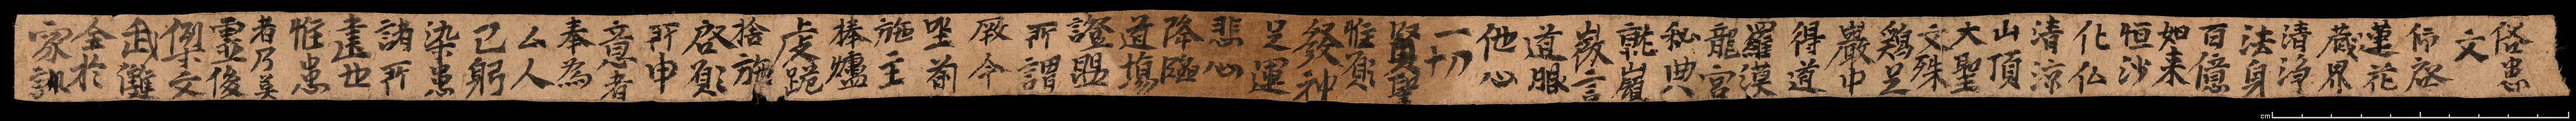 俗患
文
仰啓
蓮花
藏界
清净
法身
百億
如来
恒沙
化仏
清涼
山頂
大聖
文殊
鷄足
巖中
得道
羅漢
龍宮
秘典
鷲嶺
微言
道眼
他心
一切
賢聖
惟願
發神
足運
悲心
降臨
道場
證盟
所謂
厥今
坐前
施主
捧爐
虔跪
捨施
啓願
所申
意者
奉為
厶人
己躬
染患
諸所
建也
惟患
者乃英
靈俊
傑文
武雙
全於
家訓